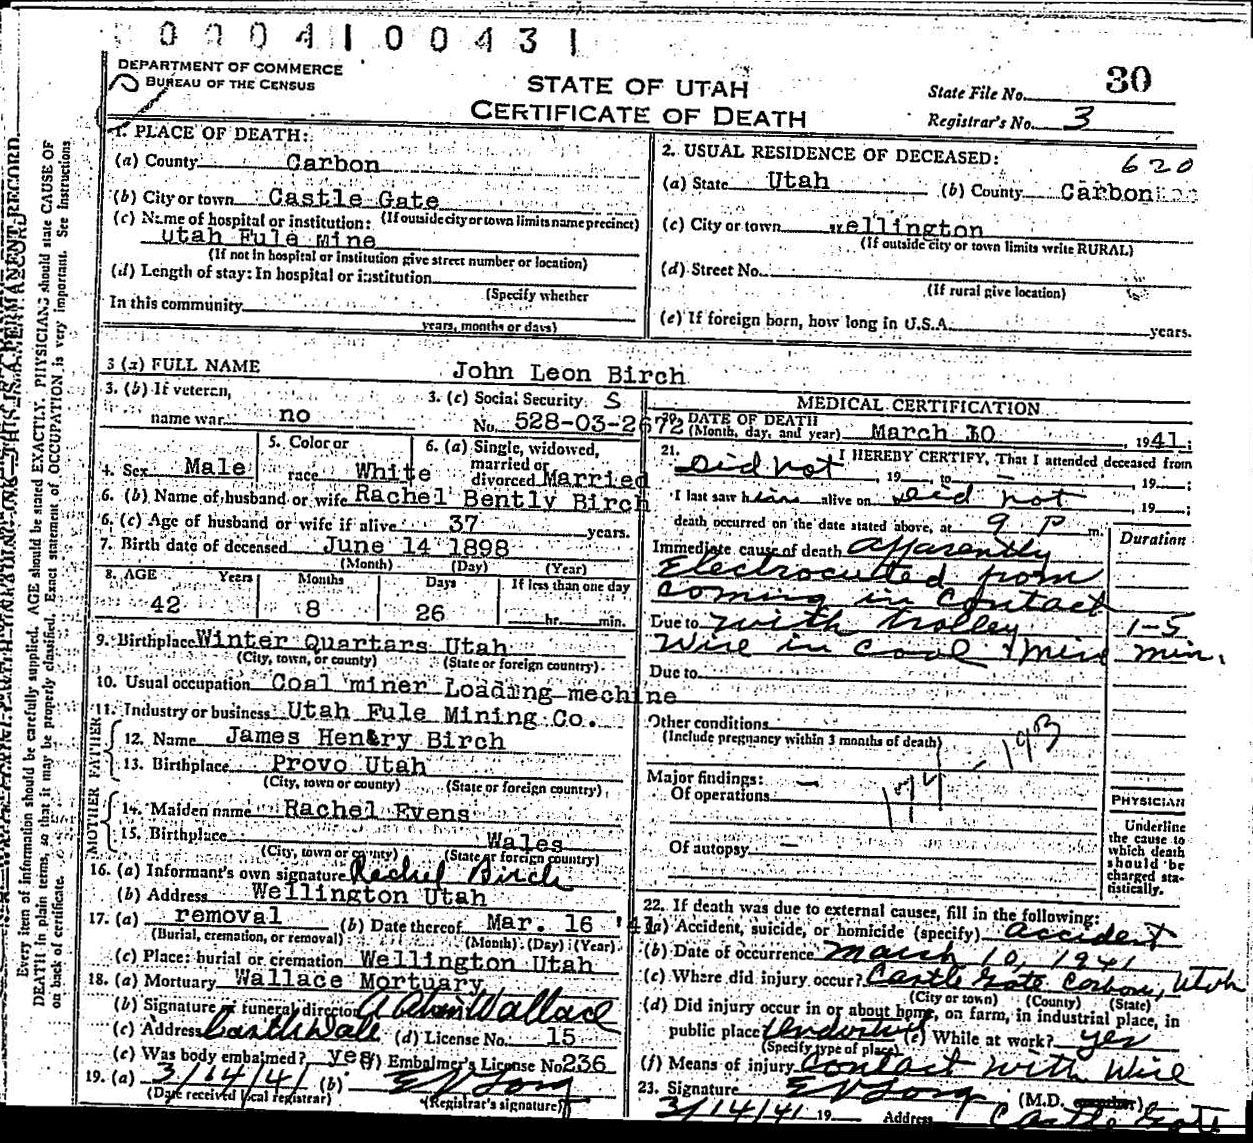 0004100431
DEPARTMENT OF COMMERCE
BUREAU OF THE CENSUS
STATE OF UTAH
CERTIFICATE OF DEATH
30
State File No.
Registrar's No. 3
1. PLACE OF DEATH:
(a) County Carbon
(b) City or town Castle Gate
(c) Name of hospital or institution: (If outside city or town limits name precinct)
Utah Fule Mine
(If not in hospital or institution give street number or location)
(d) Length of stay: In hospital or institution
(Specify whether
In this community
years, months or days)
2. USUAL RESIDENCE OF DECEASED: 620
(a) State Utah (b) County Carbon
(c) City or town Wellington
(If outside city or town limits write RURAL)
(d) Street No.
(If rural give location)
(e) If foreign born, how long in U.S.A. years.
3 (a) FULL NAME John Leon Birch
3. (b) If veteran,
name war no
3. (c) Social Security S
No. 528-03-2672
4. Sex Male
5. Color or
race White
6. (a) Single, widowed,
married or
divorced Married
6. (b) Name of husband or wife Rachel Bently Birch
6. (c) Age of husband or wife if alive 37 years.
7. Birth date of deceased June 14 1898
(Month) (Day) (Year)
8. AGE Years Months Days If less than one day
42 8 26 hr. min.
9. Birthplace Winter Quartars Utah
(City, town, or county) (State or foreign country)
10. Usual occupation Coal miner Loading mechine
11. Industry or business Utah Fule Mining Co.
FATHER
12. Name James Henary Birch
13. Birthplace Provo Utah
(City, town or county) (State or foreign country)
MOTHER
14. Maiden name Rachel Evens
15. Birthplace Wales
(City, town or county) (State or foreign country)
16. (a) Informant's own signature Rachel Birch
(b) Address Wellington Utah
17. (a) removal (b) Date thereof Mar. 16 '41
(Burial, cremation, or removal) (Month) (Day) (Year)
(c) Place: burial or cremation Wellington Utah
18. (a) Mortuary Wallace Mortuary
(b) Signature of funeral director Wallace
(c) Address (d) License No. 15
(e) Was body embalmed? yes (f) Embalmer's License No 236
19. (a) 3/14/41 (b) E V Long
(Date received local registrar) (Registrar's signature)
MEDICAL CERTIFICATION
20. DATE OF DEATH
(Month, day, and year) March 10, 1941;
21. I HEREBY CERTIFY, That I attended deceased from
Did not 19 to 19 ;
I last saw him alive on Did not 19 ;
death occurred on the date stated above, at 9 P m.
Duration
Immediate cause of death apparently
Electrocuted from
coming in contact
Due to with trolley 1-5
Wire in coal mine min.
Due to
Other conditions
(Include pregnancy within 3 months of death)
194 - 193
Major findings:
Of operations —
Of autopsy —
PHYSICIAN
Underline
the cause to
which death
should be
charged sta-
tistically.
22. If death was due to external causes, fill in the following:
(a) Accident, suicide, or homicide (specify) accident
(b) Date of occurrence March 10, 1941
(c) Where did injury occur? Castle Gate Carbon, Utah
(City or town) (County) (State)
(d) Did injury occur in or about home, on farm, in industrial place, in
public place (e) While at work? yes
(Specify type of place)
(f) Means of injury Contact with Wire
23. Signature E V Long (M.D.
3/14/41 19 Address Castle Gate
Every item of information should be carefully supplied. AGE should be stated EXACTLY. PHYSICIANS should state CAUSE OF
DEATH in plain terms, so that it may be properly classified. Exact statement of OCCUPATION is very important. See Instructions
on back of certificate.